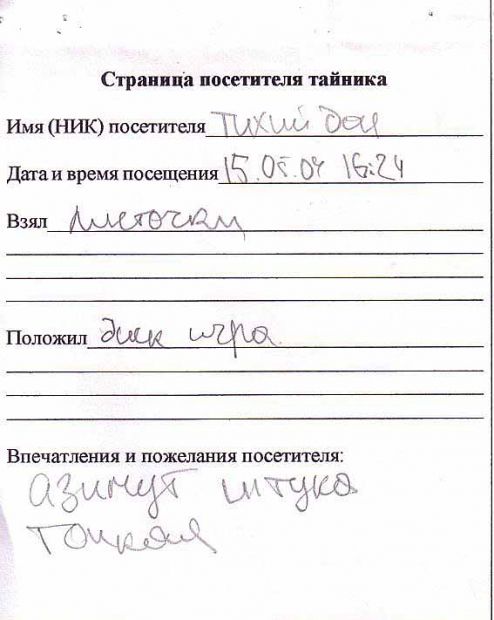 Страница посетителя тайника
Имя (НИК) посетителя Тихий Дон
Дата и время посещения 15.05.04 16:24
Взял листочки
Положил диск игра
Впечатления и пожелания посетителя:
азимут штука
тонкая